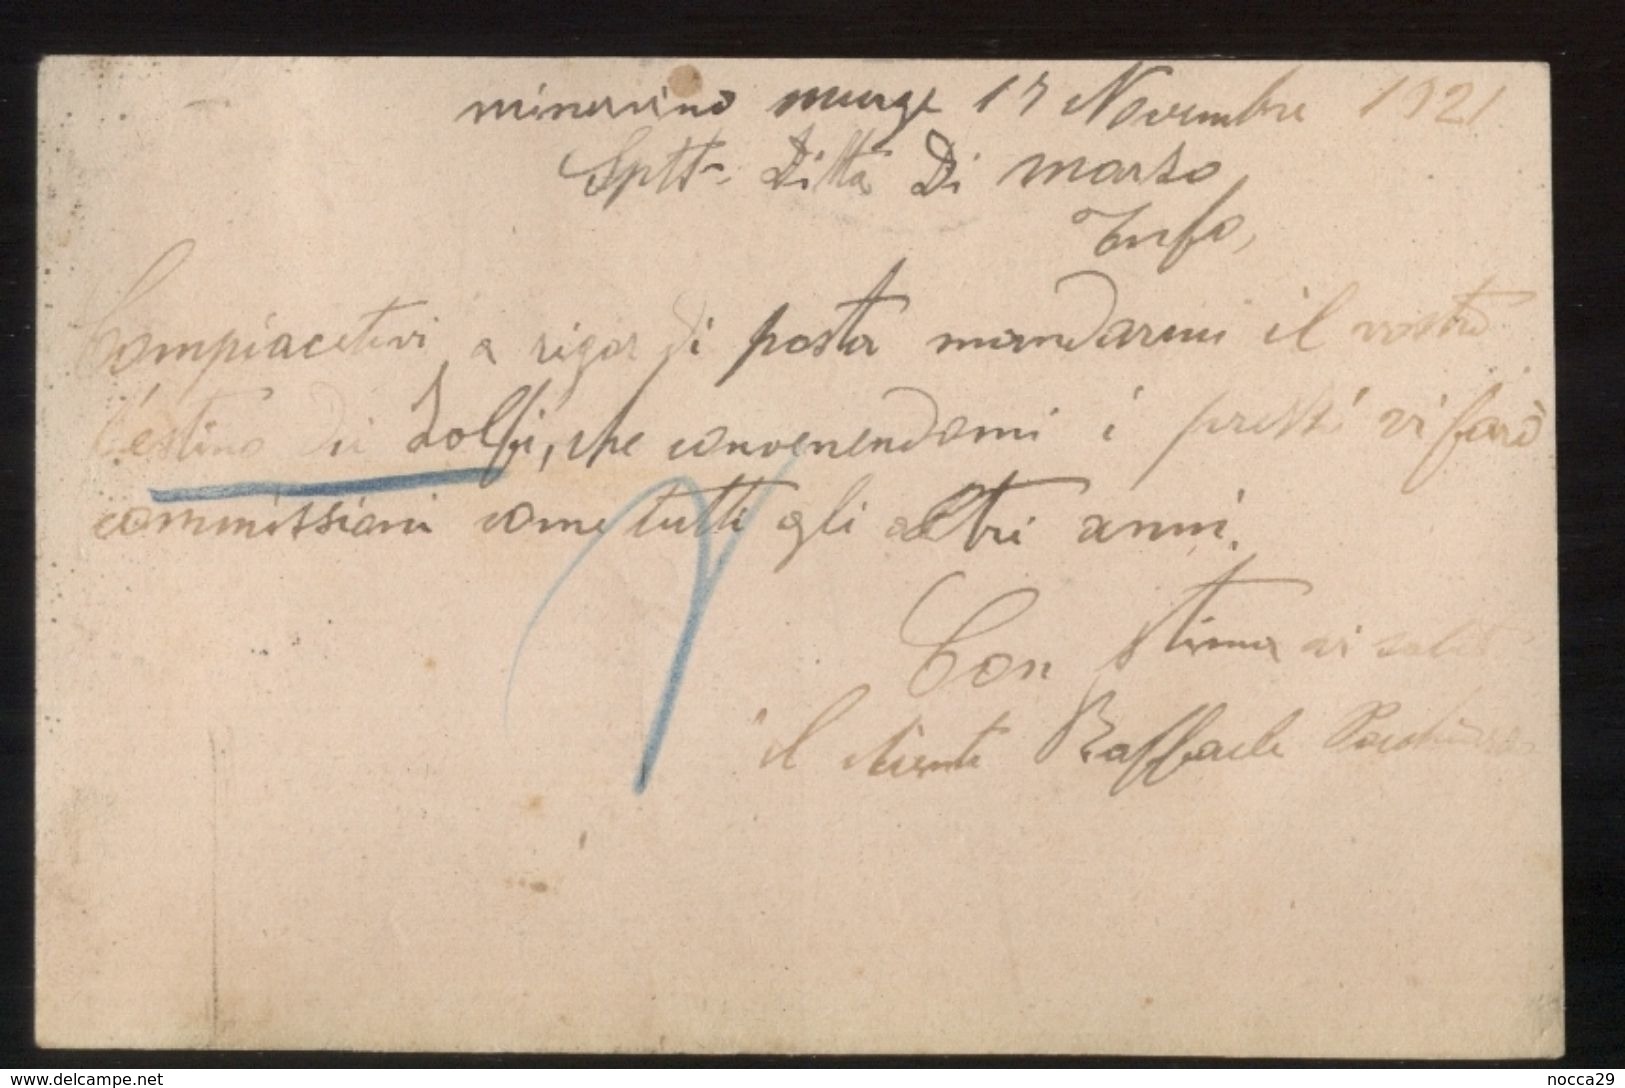 minervino murge 17 Novembre 1921
Sptt. Ditta Di Marzo
Tufo,
Compiacetevi a rigor di posta mandarmi il vostro
Listino dei Zolfi, che convenendomi i prezzi vi farò
commissioni come tutti gli altri anni.
Con stima vi saluto
il cliente Raffaele
nocca29